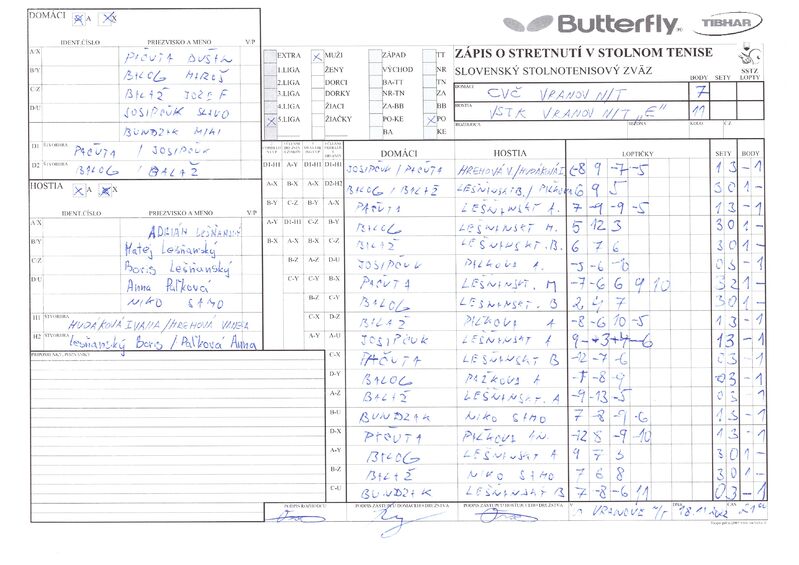 DOMÁCI A X
Butterfly TIBHAR
IDENT.ČÍSLO PRIEZVISKO A MENO V/P
A/X PAČUTA DUŠAN
B/Y BALOG MIROŠ
C/Z BALÁŽ JOZEF
D/U JOSIPČUK SLAVO
BUNDZAK MIKI
D1 ŠTVORHRA PAČUTA / JOSIPČUK
D2 BALOG / BALÁŽ
EXTRA X MUŽI ZÁPAD TT
1.LIGA ŽENY VÝCHOD NR
2.LIGA DORCI BA-TT TN
3.LIGA DORKY NR-TN ZA
4.LIGA ŽIACI ZA-BB BB
X 5.LIGA ŽIAČKY PO-KE X PO
BA KE
ZÁPIS O STRETNUTÍ V STOLNOM TENISE
SLOVENSKÝ STOLNOTENISOVÝ ZVÄZ
BODY SETY LOPTY
SSTZ
DOMÁCI CVČ VRANOV N/T 7
HOSTIA VSTK VRANOV N/T "E" 11
ROZHODCA SEZÓNA KOLO Č.
HOSTIA A X
IDENT.ČÍSLO PRIEZVISKO A MENO V/P
A/X ADRIÁN LEŠŇANSKÝ
B/Y Matej Lešňanský
C/Z Boris Lešňanský
D/U Anna Paľková
NIKO SAMO
H1 ŠTVORHRA HUDÁKOVÁ IVANA / HREHOVÁ VANESA
H2 Lešňanský Boris / Paľková Anna
PRIPOMIENKY, POZNÁMKY
DOMÁCI HOSTIA LOPTIČKY SETY BODY
D1-H1 A-Y D1-H1 D1-H1 JOSIPČUK / PAČUTA HREHOVÁ V / HUDÁKOVÁ I -8 9 -7 -5 1 3 -1
A-X B-X A-X D2-H2 BALOG / BALÁŽ LEŠŇANSKÝ B / PAĽKOVÁ 6 9 5 3 0 1 -
B-Y C-Y B-Y A-X PAČUTA LEŠŇANSKÝ A. 7 -9 -9 -5 1 3 -1
A-Y D1-H1 C-Z B-Y BALOG LEŠŇANSKÝ M. 5 12 3 3 0 1 -
B-X A-X B-X C-Z BALÁŽ LEŠŇANSKÝ B. 6 7 6 3 0 1 -
B-Z A-Z D-U JOSIPČUK PAĽKOVÁ A. -5 -6 -10 0 3 -1
C-Y C-Y B-X PAČUTA LEŠŇANSKÝ M -7 -6 6 9 10 3 2 1 -
B-Z C-Y BALOG LEŠŇANSKÝ B 2 4 7 3 0 1 -
C-X D-Z BALÁŽ PAĽKOVÁ A -8 -6 10 -5 1 3 -1
A-Y A-U JOSIPČUK LEŠŇANSKÝ A 1 3 -1
C-X PAČUTA LEŠŇANSKÝ B -12 -7 -6 0 3 -1
D-Y BALOG PAĽKOVÁ A -7 -8 -9 0 3 -1
A-Z BALÁŽ LEŠŇANSKÝ A -9 -13 -5 0 3 -1
B-U BUNDZAK NIKO SAMO 7 -8 -9 -6 1 3 -1
D-X PAČUTA PAĽKOVÁ AN. -12 8 -9 -10 1 3 -1
A-Y BALOG LEŠŇANSKÝ A 9 7 3 3 0 1 -
B-Z BALÁŽ NIKO SAMO 7 6 8 3 0 1 -
C-U BUNDZAK LEŠŇANSKÝ B 7 -8 -6 11 0 3 -1
PODPIS ROZHODCU PODPIS ZÁSTUPCU DOMÁCEHO DRUŽSTVA PODPIS ZÁSTUPCU HOSŤUJÚCEHO DRUŽSTVA V VRANOVE N/T DŇA 18.11. ČAS